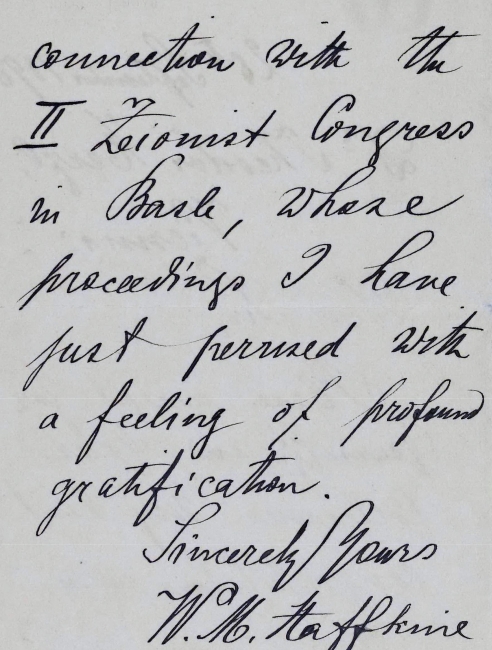 connection with the
II Zeionist Congress
in Basle, whose
proceedings I have
just perrused with
a feeling of profound
gratification.
Sincerely Yours
W. M. Haffkine